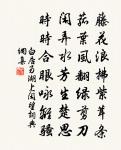 藤花浪拂紫茸條
菰葉風翻綠剪刀
閑弄水芳生楚思
時時合眼咏離騷
白居易湖上閑望詞典
網集